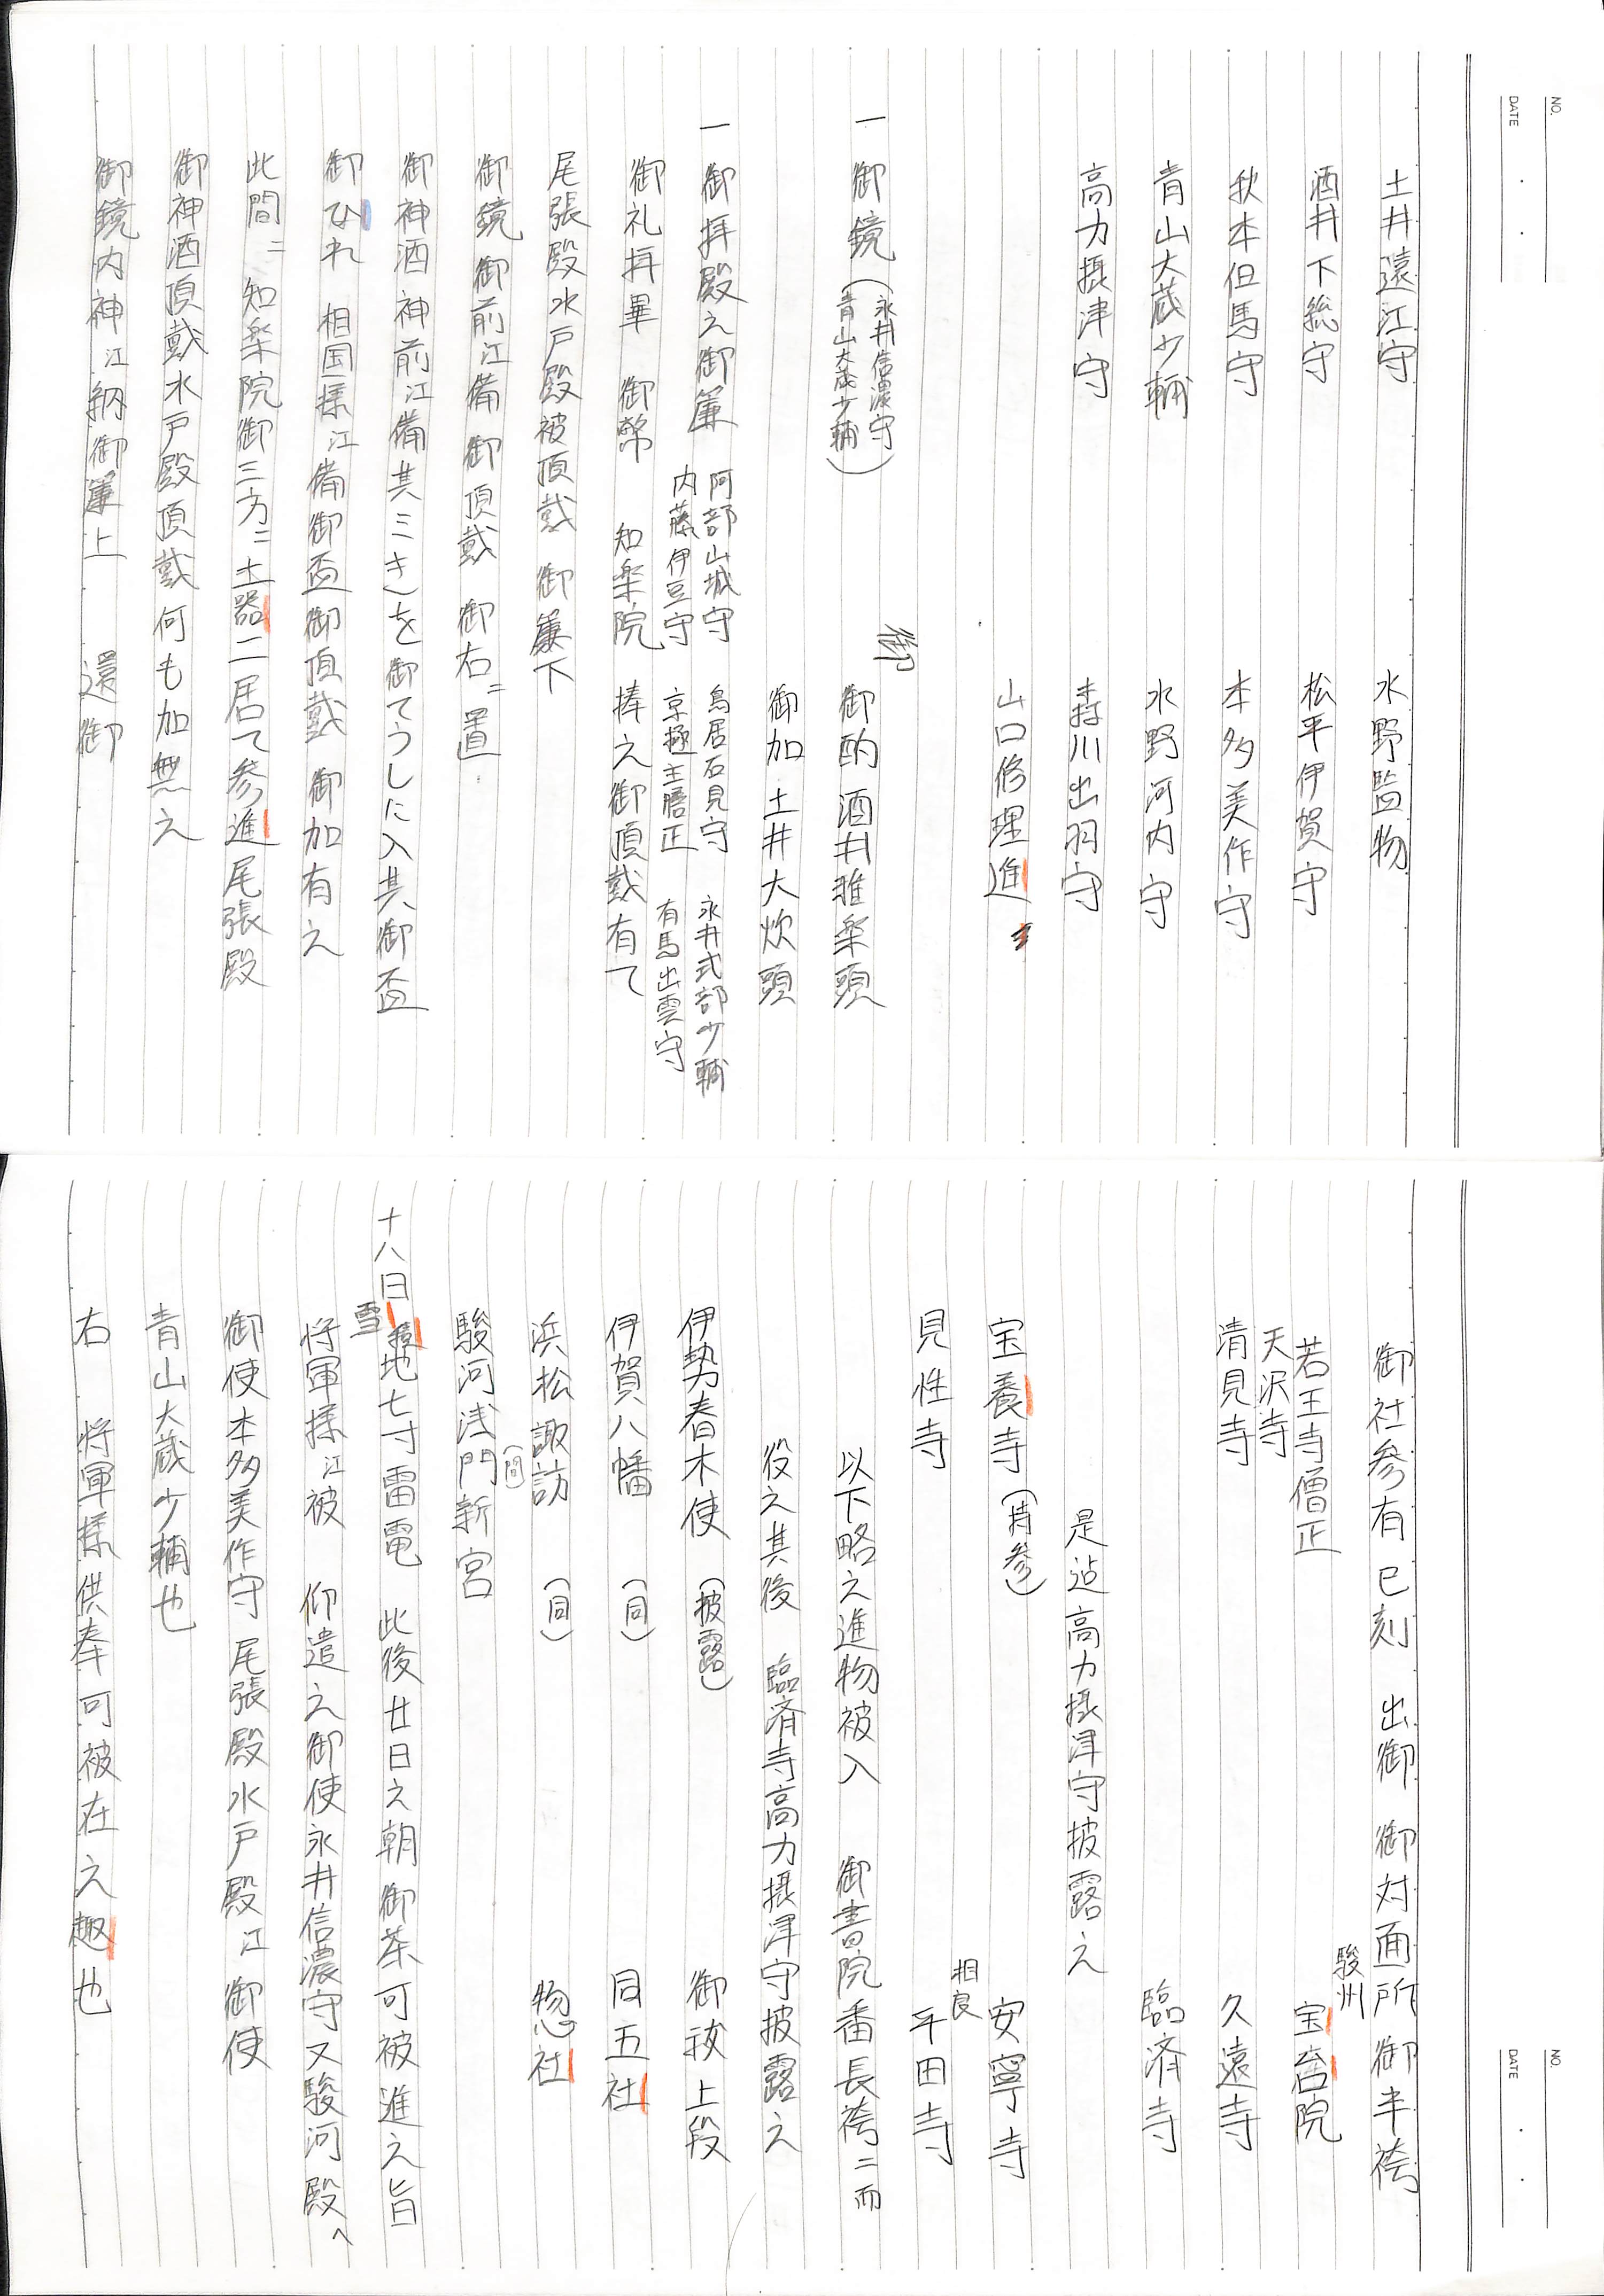 NO.
DATE
土井遠江守 水野監物
酒井下総守 松平伊賀守
秋本但馬守 本多美作守
青山大蔵少輔 水野河内守
高力摂津守 森川出羽守
山口修理進
御
一 御鏡(永井信濃守 青山大蔵少輔) 御酌 酒井雅楽頭
御加 土井大炊頭
一 御拝殿之御簾 阿部山城守 鳥居石見守 永井式部少輔
内藤伊豆守 京極主膳正 有馬出雲守
御礼拝畢 御幣 知楽院 捧之御頂戴有て
尾張殿水戸殿被頂戴 御簾下
御鏡御前江備御頂戴 御右ニ置
御神酒神前江備其ミきを御てうしに入其御盃
御ひれ 相国様江備御盃御頂戴 御加有之
此間ニ 知楽院御三方ニ土器二居て参進尾張殿
御神酒頂戴水戸殿頂戴何も加無之
御鏡内神江納御簾上 還御
NO.
DATE
御社参有巳刻 出御 御対面所御半袴
駿州
若王寺僧正 宝台院
天沢寺
清見寺 久遠寺
臨済寺
是迠高力摂津守披露之
宝養寺(持参) 安寧寺
相良
見性寺 平田寺
以下略之進物被入 御書院番長袴ニ而
役之其後 臨済寺高力摂津守披露之
伊勢春木使(披露) 御祓上段
伊賀八幡(同) 同五社
浜松諏訪(同) 惣社
(間)
駿河浅門新宮
十八日 地七寸雷電 此後廿日之朝御茶可被進之旨
雪
将軍様江被 仰遣之御使永井信濃守又駿河殿へ
御使本多美作守尾張殿水戸殿江御使
青山大蔵少輔也
右 将軍様供奉可被在之趣也